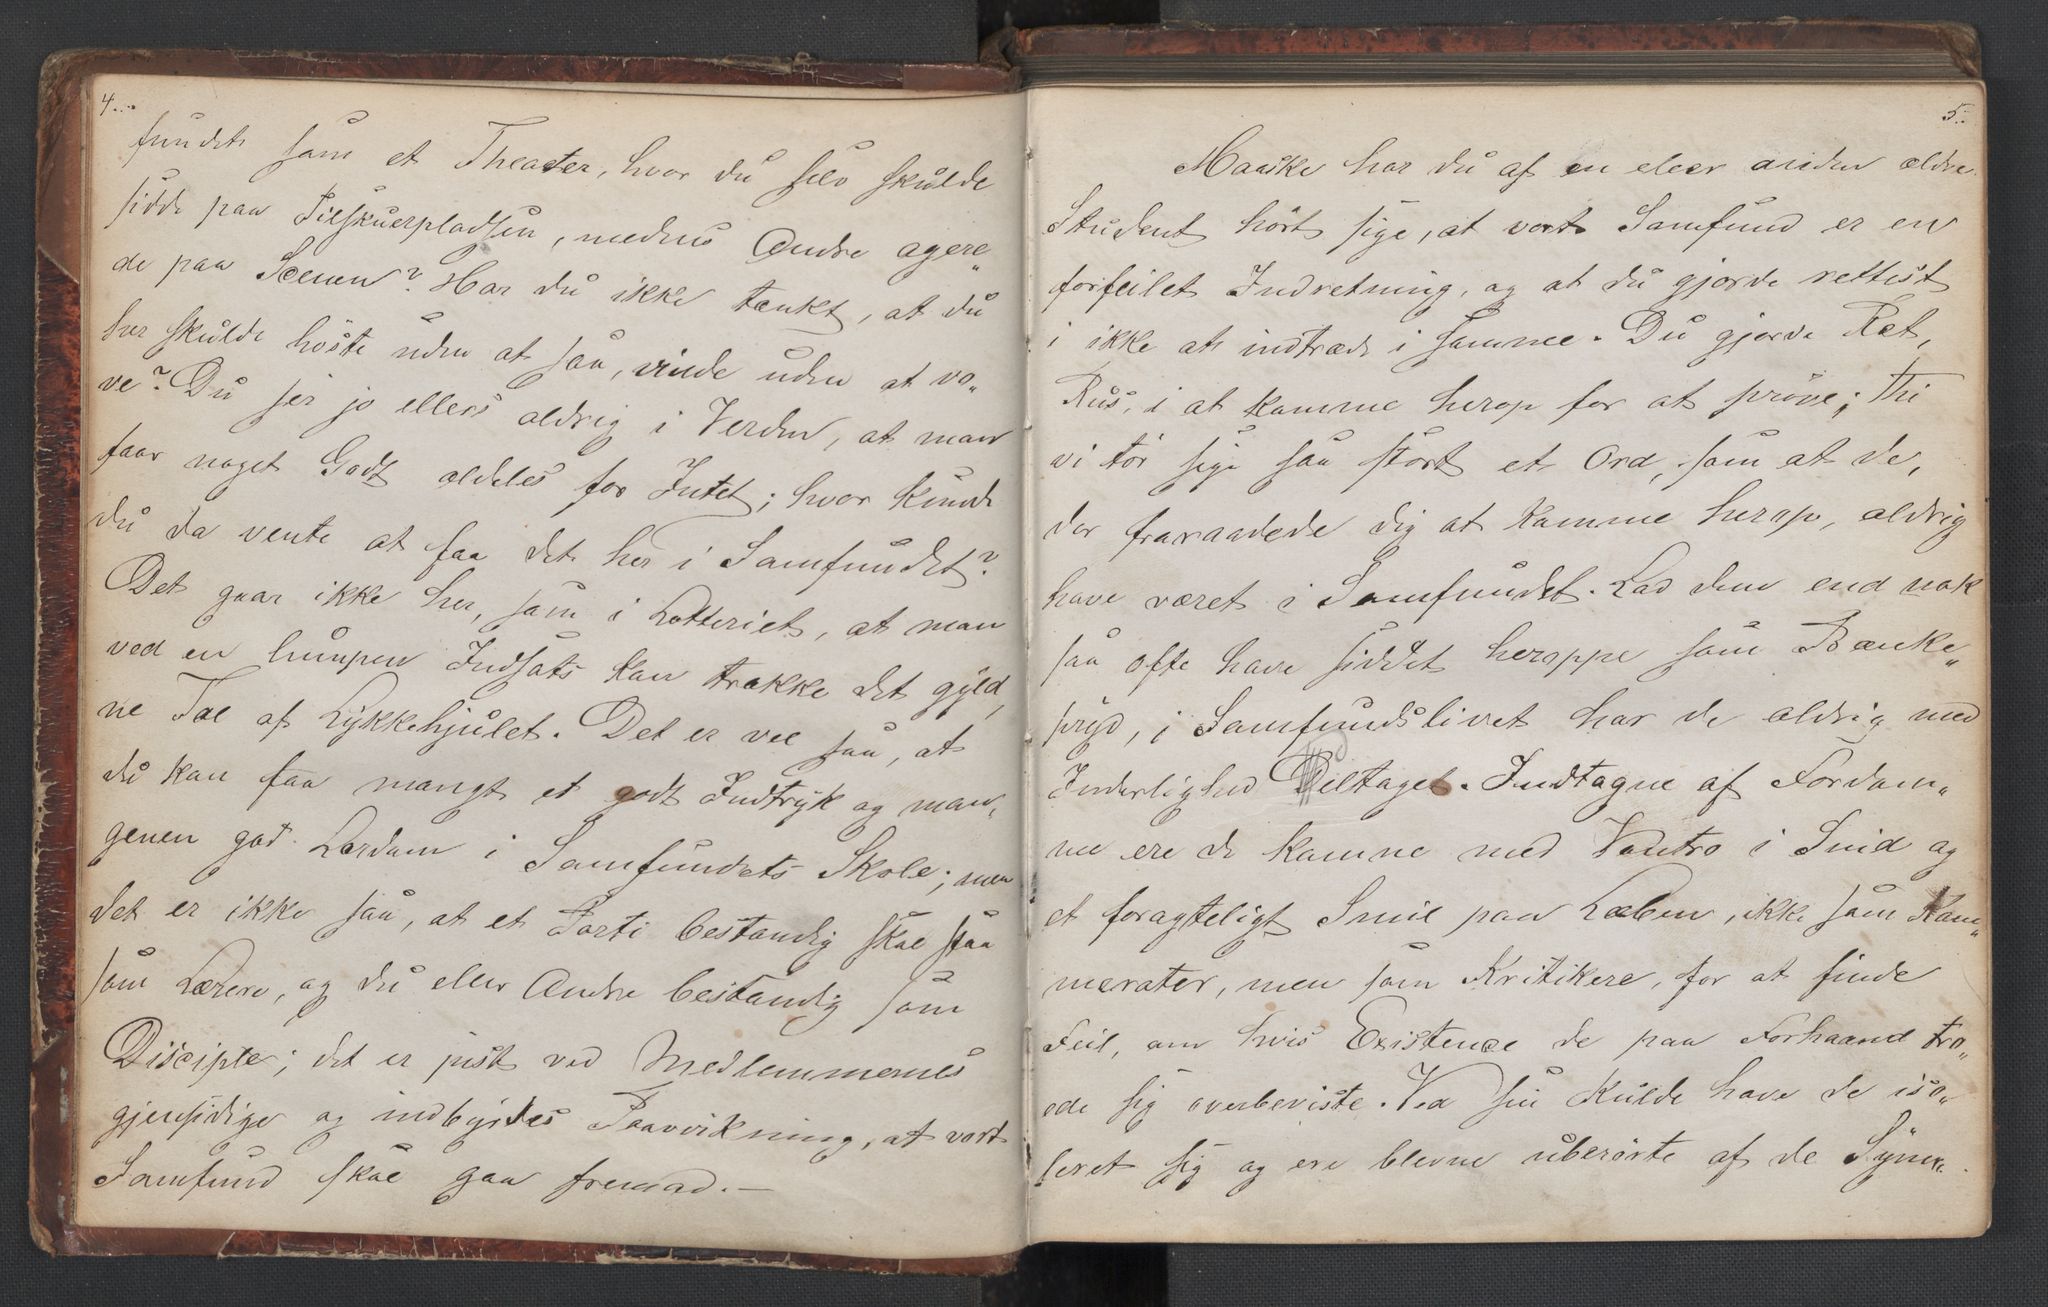 4.
fundet som et Theater, hvor du selv skulde
sidde paa Tilskuerpladsen, medens Andre agere„
de paa Scenen? Har du ikke tænkt, at du
her skulde höste uden at saa, vinde uden at vo„
ve? Du ser jo ellers aldrig i Verden, at man
faar noget Godt aldeles for Intet; hvor kunde
du da vente at faa det her i Samfundet?
Det gaar ikke her, som i Lotteriet, at man
ved en lumpen Indsats kan trække det gyld„
ne Tal af Lykkehjulet. Det er vel saa, at
du kan faa mangt et godt Indtryk og man„
gen en god Lærdom i Samfundets Skole; men
det er ikke saa, at et Parti bestandig skal staa
som Lærere, og du eller Andre bestandig som
Disciple; det er just ved Medlemmernes
gjensidige og indbyrdes Paavirkning, at vort
Samfund skal gaa fremad. —
5.
Maaske har du af en eller anden ældre
Student hört sige, at vort Samfund er en
forfeilet Indretning, og at du gjorde rettest
i ikke at indtræde i samme. Du gjorde Ret,
Rus, i at komme herop for at pröve; Thi
vi tör sige saa stort et Ord, som at de,
der fraraadede dig at komme herop, aldrig
have været i Samfundet. Lad dem end nok
saa ofte have siddet heroppe som Bænke„
pryd, i Samfundslivet har de aldrig med
Inderlighed Deltaget. Indtagne af Fordom„
me ere de komne med Vantro i Sind og
et foragteligt Smil paa Læben, ikke som Kam„
merater, men som Kritikere, for at finde
Feil, om hvis Existence de paa Forhaand tro„
ede sig overbeviste. Ved sin Kulde have de iso„
leret sig og ere blevne uberörte af de